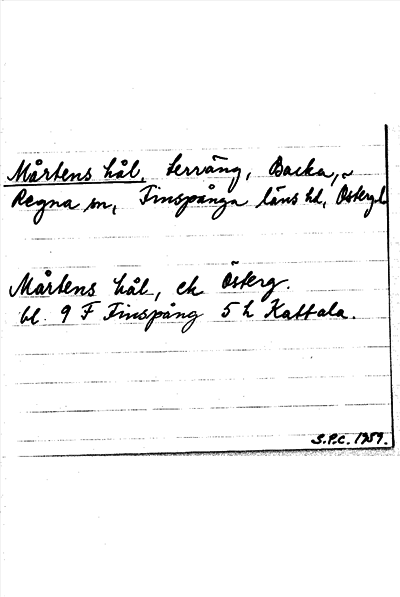 Mårtens hål, terräng, Backa,
Regna sn, Finspånga läns hd, Östergl
Mårtens hål, ek Österg.
bl. 9 F Finspång 5 h Kattala.
S.P.C. 1959.